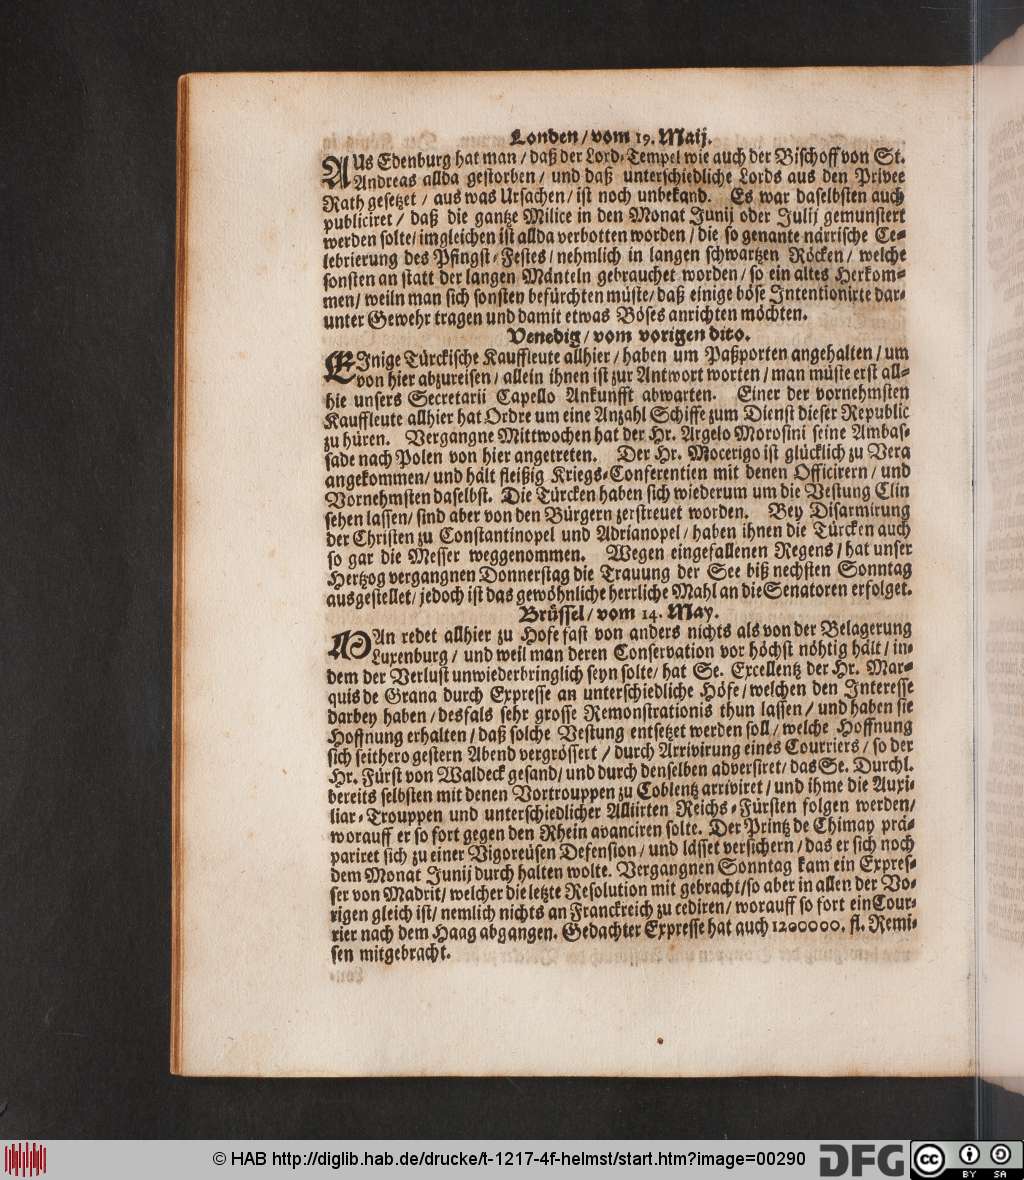 Londen / vom 19. Maij.
AUs Edenburg hat man / daß der Lord-Tempel wie auch der Bischoff von St.
Andreas allda gestorben / und daß unterschiedliche Lords aus den Privee
Rath gesetzet / aus was Ursachen / ist noch unbekand. Es war daselbsten auch
publiciret / daß die gantze Milice in den Monat Junij oder Julij gemunstert
werden solte / imgleichen ist allda verbotten worden / die so genante närrische Ce-
lebrierung des Pfingst-Festes / nehmlich in langen schwartzen Röcken / welche
sonsten an statt der langen Mänteln gebrauchet worden / so ein altes Herkom-
men / weiln man sich sonsten befürchten müste / daß einige böse Intentionirte dar-
unter Gewehr tragen und damit etwas Böses anrichten möchten.
Venedig / vom vorigen dito.
EInige Türckische Kauffleute allhier / haben um Paßporten angehalten / um
von hier abzureisen / allein ihnen ist zur Antwort worten / man müste erst all-
hie unsers Secretarii Capello Ankunfft abwarten. Einer der vornehmsten
Kauffleute allhier hat Ordre um eine Anzahl Schiffe zum Dienst dieser Republic
zu hüren. Vergangne Mittwochen hat der Hr. Argelo Morosini seine Ambas-
sade nach Polen von hier angetreten. Der Hr. Mocerigo ist glücklich zu Vera
angekommen / und hält fleißig Kriegs-Conferentien mit denen Officirern / und
Vornehmsten daselbst. Die Türcken haben sich wiederum um die Vestung Clin
sehen lassen / sind aber von den Bürgern zerstreuet worden. Bey Disarmirung
der Christen zu Constantinopel und Adrianopel / haben ihnen die Türcken auch
so gar die Messer weggenommen. Wegen eingefallenen Regens / hat unser
Hertzog vergangnen Donnerstag die Trauung der See biß nechsten Sonntag
ausgestellet / jedoch ist das gewöhnliche herrliche Mahl an die Senatoren erfolget.
Brüssel / vom 14. May.
MAn redet allhier zu Hofe fast von anders nichts als von der Belagerung
Luxenburg / und weil man deren Conservation vor höchst nöhtig hält / in-
dem der Verlust unwiederbringlich seyn solte / hat Se. Excellentz der Hr. Mar-
quis de Grana durch Expresse an unterschiedliche Höfe / welchen den Interesse
darbey haben / desfals sehr grosse Remonstrationis thun lassen / und haben sie
Hoffnung erhalten / daß solche Vestung entsetzet werden soll / welche Hoffnung
sich seithero gestern Abend vergrössert / durch Arrivirung eines Courriers / so der
Hr. Fürst von Waldeck gesand / und durch denselben adversiret / das Se. Durchl.
bereits selbsten mit denen Vortrouppen zu Coblentz arriviret / und ihme die Auxi-
liar-Trouppen und unterschiedlicher Alliirten Reichs-Fürsten folgen werden /
worauff er so fort gegen den Rhein avanciren solte. Der Printz de Chimay prä-
pariret sich zu einer Vigoreüsen Defension / und lässet versichern / das er sich noch
dem Monat Junij durch halten wolte. Vergangnen Sonntag kam ein Expres-
ser von Madrit / welcher die letzte Resolution mit gebracht / so aber in allen der Vo-
rigen gleich ist / nemlich nichts an Franckreich zu cediren / worauff so fort ein Cour-
rier nach dem Haag abgangen. Gedachter Expresse hat auch 1200000. fl. Remi-
sen mitgebracht.
© HAB http://diglib.hab.de/drucke/t-1217-4f-helmst/start.htm?image=00290
DFG
cc BY SA